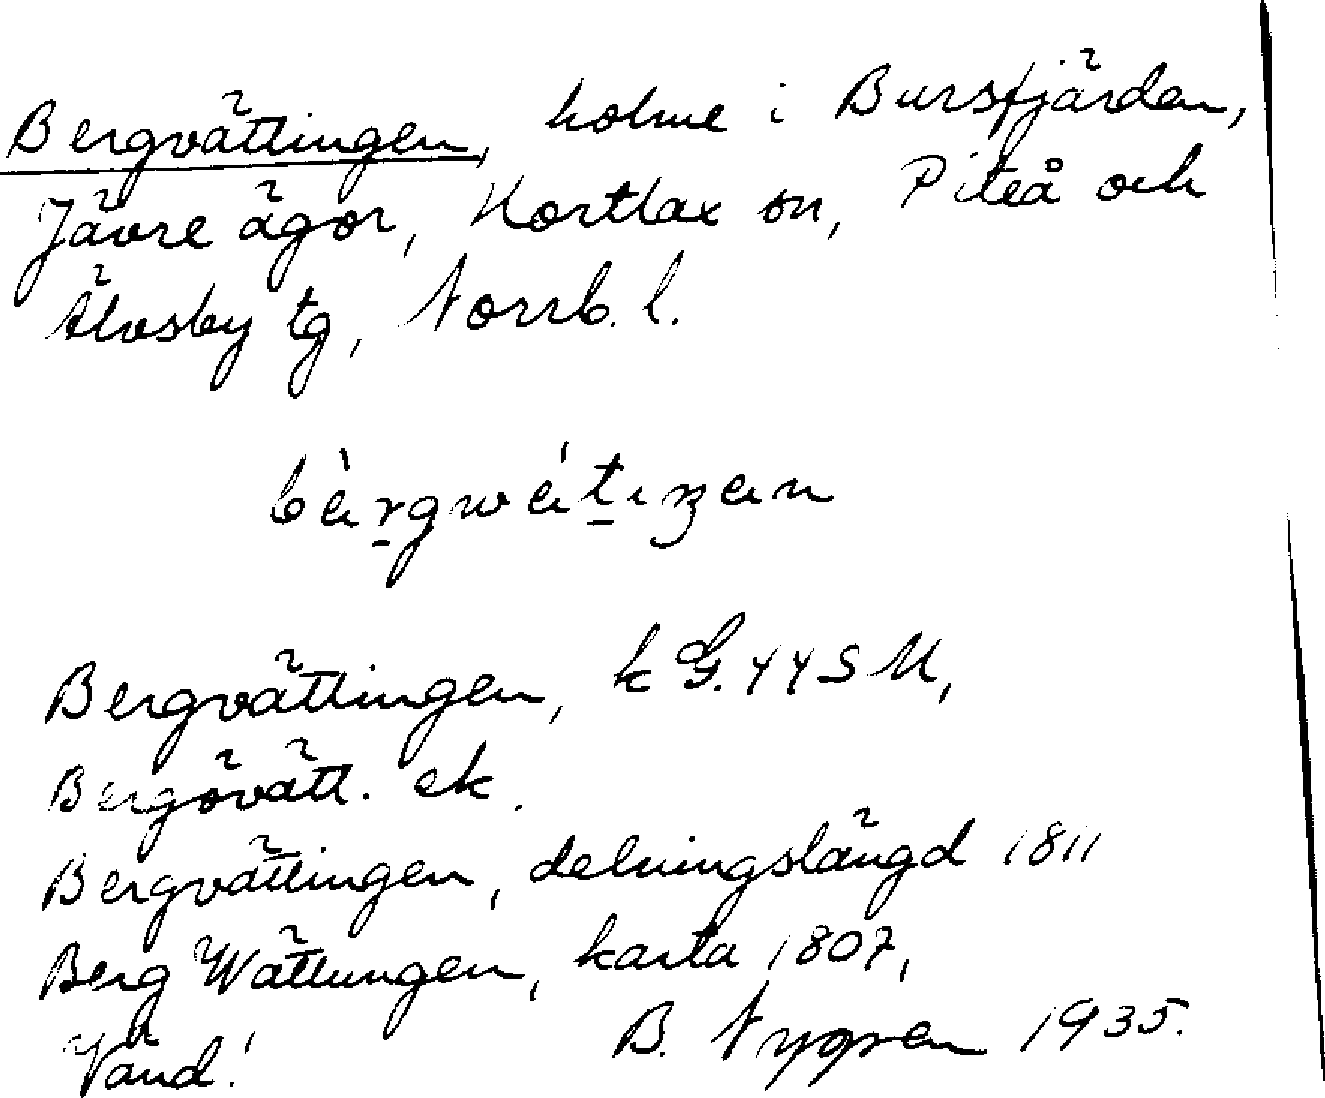 Bergvättingen, holme i Bursfjärden,
Jävre ägor, Hortlax sn, Piteå och
Älvsby tg, Norrb. l.
Bergvättingen, k G. 44 S M,
Bergövätt. ek.
Bergvättingen, delningslängd 1811
Berg Wättungen, karta 1807,
Vänd! B. Nygren 1935.